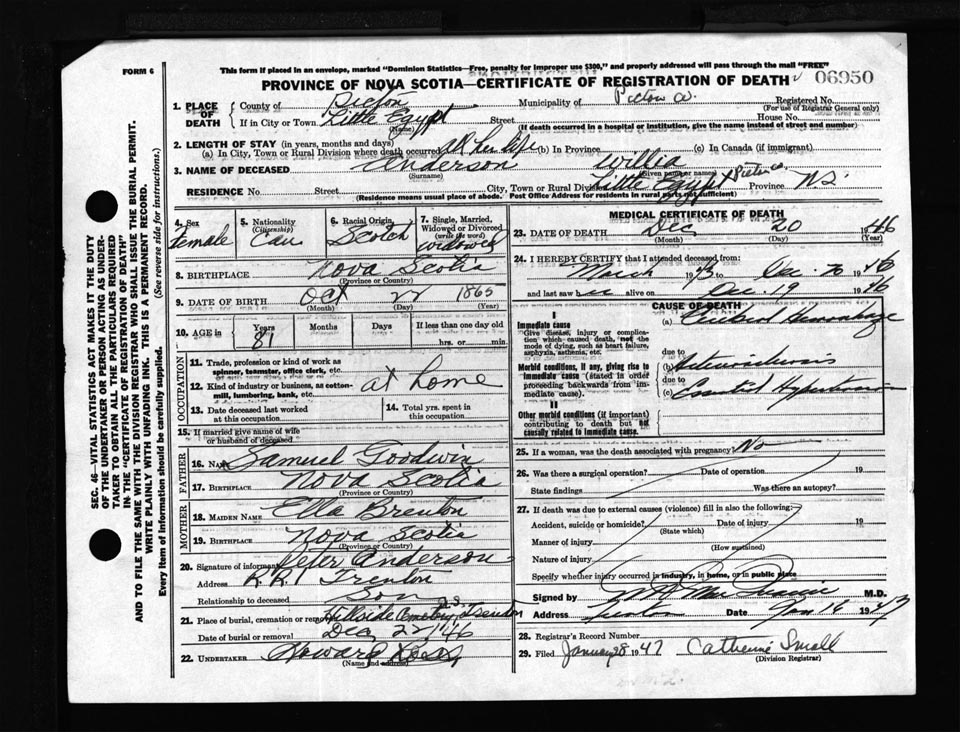 FORM 6
This form if placed in an envelope, marked "Dominion Statistics—Free, penalty for improper use $300," and properly addressed will pass through the mail "FREE"
PROVINCE OF NOVA SCOTIA—CERTIFICATE OF REGISTRATION OF DEATH
06950
1. PLACE OF DEATH
County of Pictou
Municipality of Pictou Co.
Registered No.
(For use of Registrar General only)
If in City or Town Little Egypt
(Name)
Street
House No.
(If death occurred in a hospital or institution, give the name instead of street and number)
2. LENGTH OF STAY (in years, months and days)
(a) In City, Town or Rural Division where death occurred all her life
(b) In Province
(c) In Canada (if immigrant)
3. NAME OF DECEASED Anderson
(Surname)
Willia
(Given names)
RESIDENCE No.
Street
City, Town or Rural Division Little Egypt Pictou Co.
Province N.S.
(Residence means usual place of abode. Post Office Address for residents in rural parts not sufficient)
4. Sex
female
5. Nationality
(Citizenship)
Can
6. Racial Origin
Scotch
7. Single, Married, Widowed or Divorced
(write the word)
widowed
8. BIRTHPLACE Nova Scotia
(Province or Country)
9. DATE OF BIRTH Oct 22 1865
(Month) (Day) (Year)
10. AGE in
Years Months Days If less than one day old
81
hrs. or min.
OCCUPATION
11. Trade, profession or kind of work as spinner, teamster, office clerk, etc.
12. Kind of industry or business, as cotton-mill, lumbering, bank, etc.
at home
13. Date deceased last worked at this occupation
14. Total yrs. spent in this occupation
15. If married give name of wife or husband of deceased
FATHER
16. Name Samuel Goodwin
17. BIRTHPLACE Nova Scotia
(Province or Country)
MOTHER
18. MAIDEN NAME Ella Brenton
19. BIRTHPLACE Nova Scotia
(Province or Country)
20. Signature of informant Peter Anderson
Address R.R.1 Trenton
Relationship to deceased Son
21. Place of burial, cremation or removal Hillside Cemetery Trenton N.S.
Date of burial or removal Dec 22/46
22. UNDERTAKER Howard Ross
(Name and address)
MEDICAL CERTIFICATE OF DEATH
23. DATE OF DEATH Dec 20 1946
(Month) (Day) (Year)
24. I HEREBY CERTIFY that I attended deceased from:
March 1943 to Dec. 20 1946
and last saw her alive on Dec. 19 1946
CAUSE OF DEATH
I
Immediate cause
(Give disease, injury or complication which caused death, not the mode of dying, such as heart failure, asphyxia, asthenia, etc.
(a) Cerebral Hemorrhage
due to
Morbid conditions, if any, giving rise to immediate cause (stated in order proceeding backwards from immediate cause).
(b) Arteriosclerosis
due to
(c) Essential Hypertension
II
Other morbid conditions (if important) contributing to death but not causally related to immediate cause.
25. If a woman, was the death associated with pregnancy? No
26. Was there a surgical operation? Date of operation 19
State findings Was there an autopsy?
27. If death was due to external causes (violence) fill in also the following:
Accident, suicide or homicide? Date of injury 19
(State which)
Manner of injury
(How sustained)
Nature of injury
Specify whether injury occurred in industry, in home, or in public place
Signed by M.D.
Address Trenton Date Jan 16 1947
28. Registrar's Record Number
29. Filed January 28 1947 Catherine Small
(Division Registrar)
SEC. 46—VITAL STATISTICS ACT MAKES IT THE DUTY
OF THE UNDERTAKER OR PERSON ACTING AS UNDER-
TAKER TO OBTAIN ALL THE PARTICULARS REQUIRED
IN THE "CERTIFICATE OF REGISTRATION OF DEATH"
AND TO FILE THE SAME WITH THE DIVISION REGISTRAR WHO SHALL ISSUE THE BURIAL PERMIT.
WRITE PLAINLY WITH UNFADING INK. THIS IS A PERMANENT RECORD.
Every item of information should be carefully supplied. (See reverse side for instructions.)